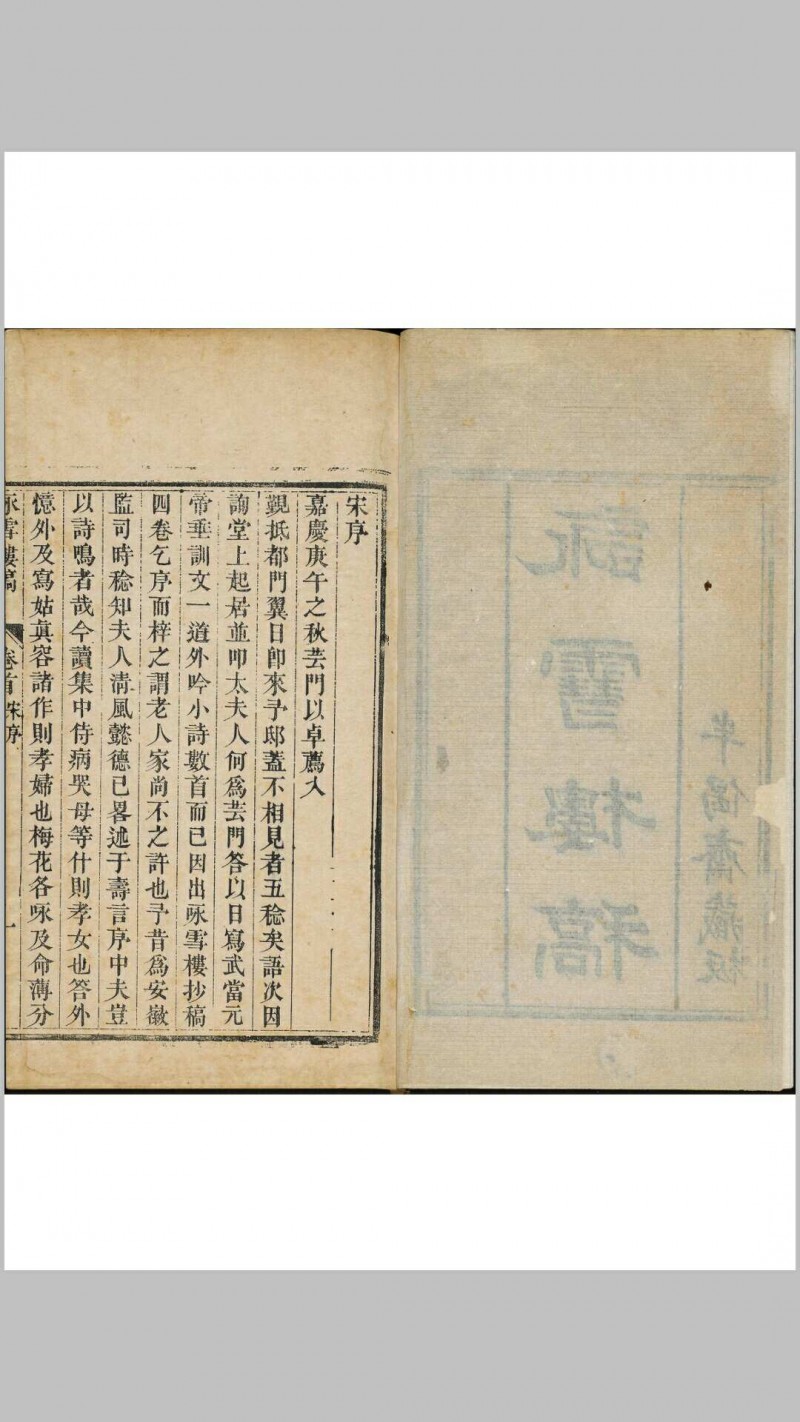 詠雪樓稿
半偈齋藏板
宋序
嘉慶庚午之秋芸門以卓薦入
覲抵都門翼日卽來予邸蓋不相見者五稔矣語次因
詢堂上起居並叩太夫人何爲芸門答以日寫武當元
帝垂訓文一道外吟小詩數首而已因出咏雪樓抄稿
四卷乞序而梓之謂老人家尚不之許也予昔爲安徽
監司時稔知夫人淸風懿德已畧述于壽言序中夫豈
以詩鳴者哉今讀集中侍病哭母等什則孝女也答外
憶外及寫姑真容諸作則孝婦也梅花各咏及命薄分
咏雪樓稿 卷首 宋序 一